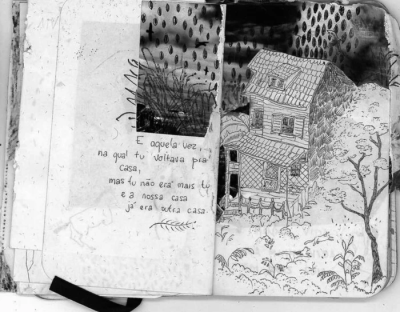 E aquela vez,
na qual tu voltava pra
casa,
mas tu não era mais tu
e a nossa casa
já era outra casa.